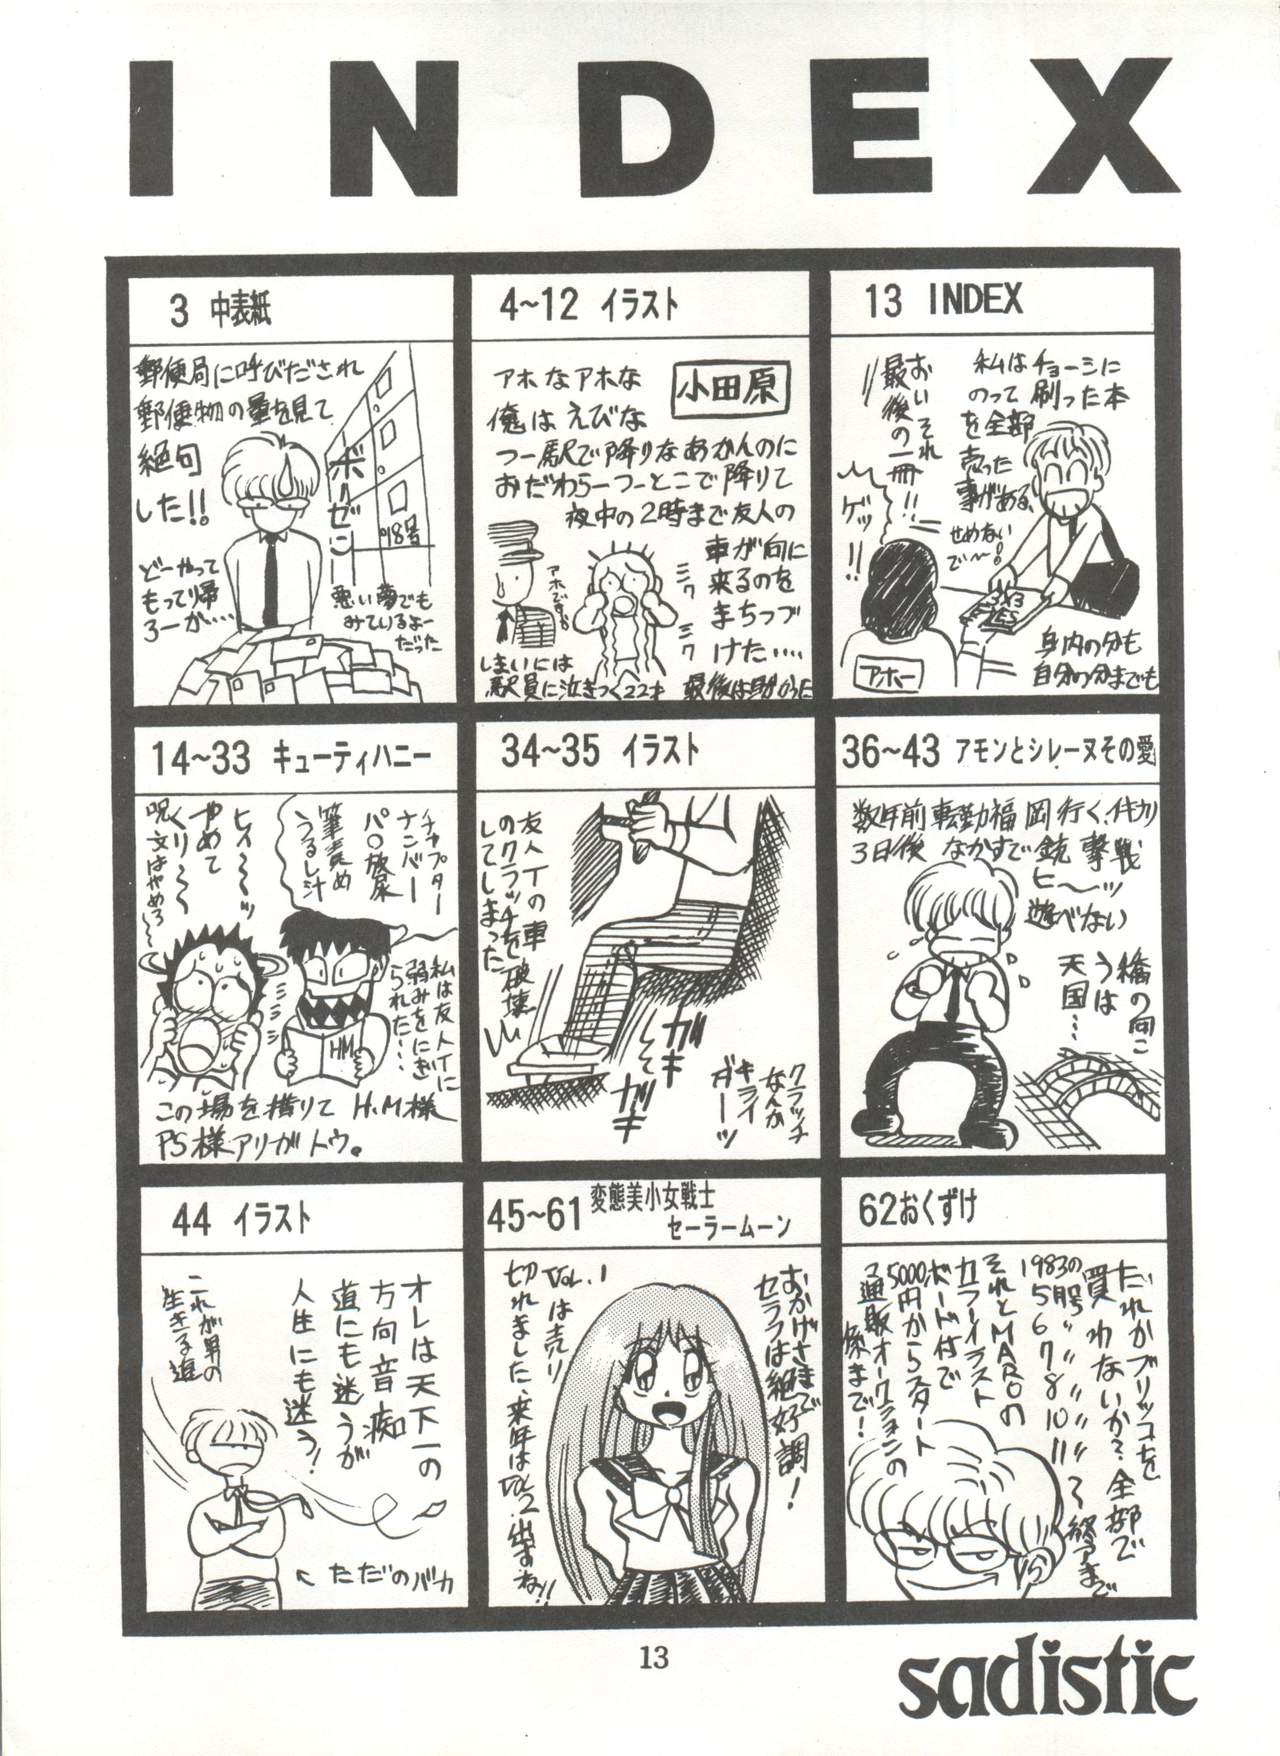 INDEX
3 中表紙
郵便局に呼びだされ
郵便物の量を見て
絶句
した!!
ボーゼン
98号
どーやって
もって帰
ろーか‥‥
悪い夢でも
みているよー
だった
4~12 イラスト
小田原
アホなアホな
俺はえびな
つー駅で降りなあかんのに
おだわらーつーとこで降りて
夜中の2時まで友人の
車が向に
来るのを
まちつづ
けた‥‥
アホですな
シク
シク
しまいには
駅員に泣きつく22才
13 INDEX
私はチョーシに
のって刷った本
を全部
売った
事がある、
せめないでー
おいそれ
最後の一冊!!
ゲッ!!
アホー
身内の分も
自分の分までも
14~33 キューティハニー
チャプター
ナンバー
パ〇放尿
筆責め
うるし汁
ヒィ〜〜ッ
やめて
くり〜〜
呪文はやめろ〜
私は友人Tに
弱みをにぎ
られた‥‥
HM
この場を借りて H.M様
PS様アリガトウ。
34~35 イラスト
友人Tの車
のクラッチを破壊
してしまった
ガキ
して
ガギ
クラッチ
なんか
キライ
ガーッ
36~43 アモンとシレーヌその愛
数年前転勤福岡行く、
3日後 なかすで銃撃戦
ヒ〜ッ
遊べない
橋の向こ
うは
天国‥‥
44 イラスト
オレは天下一の
方向音痴
道にも迷うが
人生にも迷う!
これが男の
生きる道
←ただのバカ
45~61 変態美小女戦士
セーラームーン
おかげさまで
セラフは絶好調!
Vol.1
は売り
切れました、来年は
Vol.2出すね!!
62おくずけ
だれかブリッコを
買わないか?全部で
1983の
5月号〃
6〃
7〃
8〃
10〃
11〃
それとMAROの
カラーイラスト
ボード付で
5000円からスタート
通販オークションの
係まで!
13
sadistic